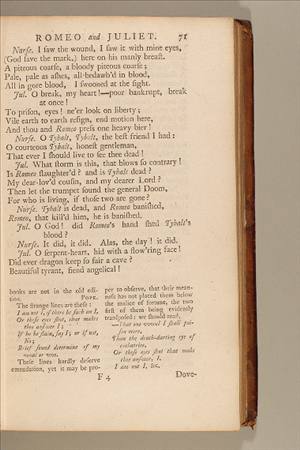 ROMEO and JULIET. 71
Nurse. I saw the wound, I saw it with mine eyes,
(God save the mark,) here on his manly breast.
A piteous coarse, a bloody piteous coarse;
Pale, pale as ashes, all bedawb'd in blood,
All in gore blood, I swooned at the sight.
Jul. O break, my heart!—poor bankrupt, break
at once!
To prison, eyes! ne'er look on liberty;
Vile earth to earth resign, end motion here,
And thou and Romeo press one heavy bier!
Nurse. O Tybalt, Tybalt, the best friend I had:
O courteous Tybalt, honest gentleman,
That ever I should live to see thee dead!
Jul. What storm is this, that blows so contrary!
Is Romeo slaughter'd? and is Tybalt dead?
My dear-lov'd cousin, and my dearer Lord?
Then let the trumpet sound the general Doom,
For who is living, if those two are gone?
Nurse. Tybalt is dead, and Romeo banished,
Romeo, that kill'd him, he is banished.
Jul. O God! did Romeo's hand shed Tybalt's
blood?
Nurse. It did, it did. Alas, the day! it did.
Jul. O serpent-heart, hid with a flow'ring face!
Did ever dragon keep so fair a cave?
Beautiful tyrant, fiend angelical!
books are not in the old edi-
tion. POPE.
The strange lines are these:
I am not I, if there be such an I,
Or these eyes shot, that makes
thee answer I;
If he be slain, say I; or if not,
No;
Brief sound determine of my
weal or woe.
These lines hardly deserve
emendation, yet it may be pro-
per to observe, that their mean-
ness has not placed them below
the malice of fortune, the two
first of them being evidently
transposed: we should read,
—That one vowel I shall poi-
son more,
Than the death-darting eye of
cockatrice,
Or those eyes shot that make
thee answer, I.
I am not I, &c.
F 4
Dove-